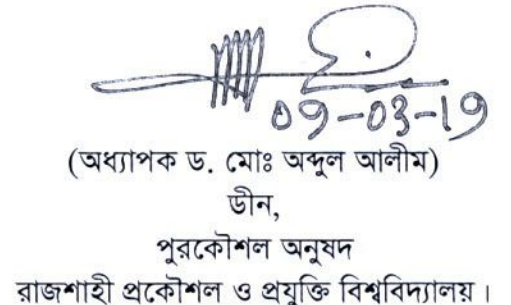 09-03-19
(অধ্যাপক ড. মোঃ অব্দুল আলীম)
ডীন,
পুরকৌশল অনুষদ
রাজশাহী প্রকৌশল ও প্রযুক্তি বিশ্ববিদ্যালয়।